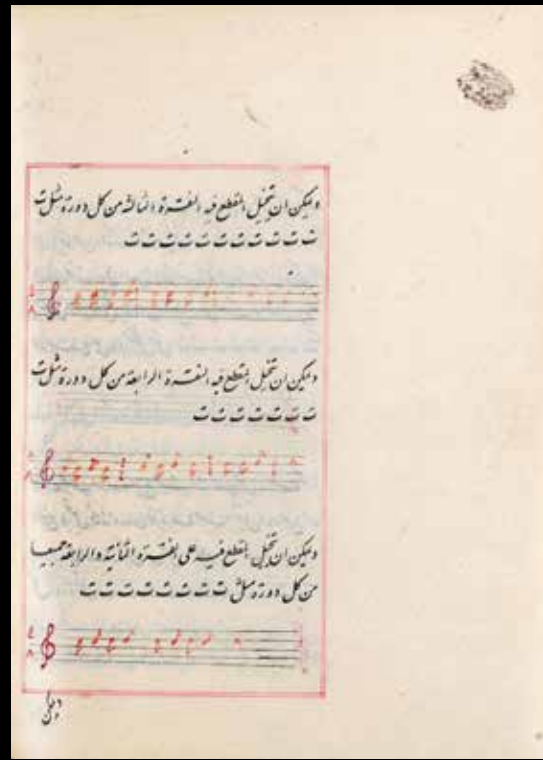 ويمكن ان يتخيل القطع فيه النقرة الثالثة من كل دورة مثل ت
ت ت ت ت ت ت ت ت ت ت
ويمكن ان يتخيل القطع فيه النقرة الرابعة من كل دورة مثل ت
ت ت ت ت ت ت ت
ويمكن ان يتخيل القطع فيه على النقرة الثانية والرابعة جميعا
من كل دورة مثل ت ت ت ت ت ت ت ت